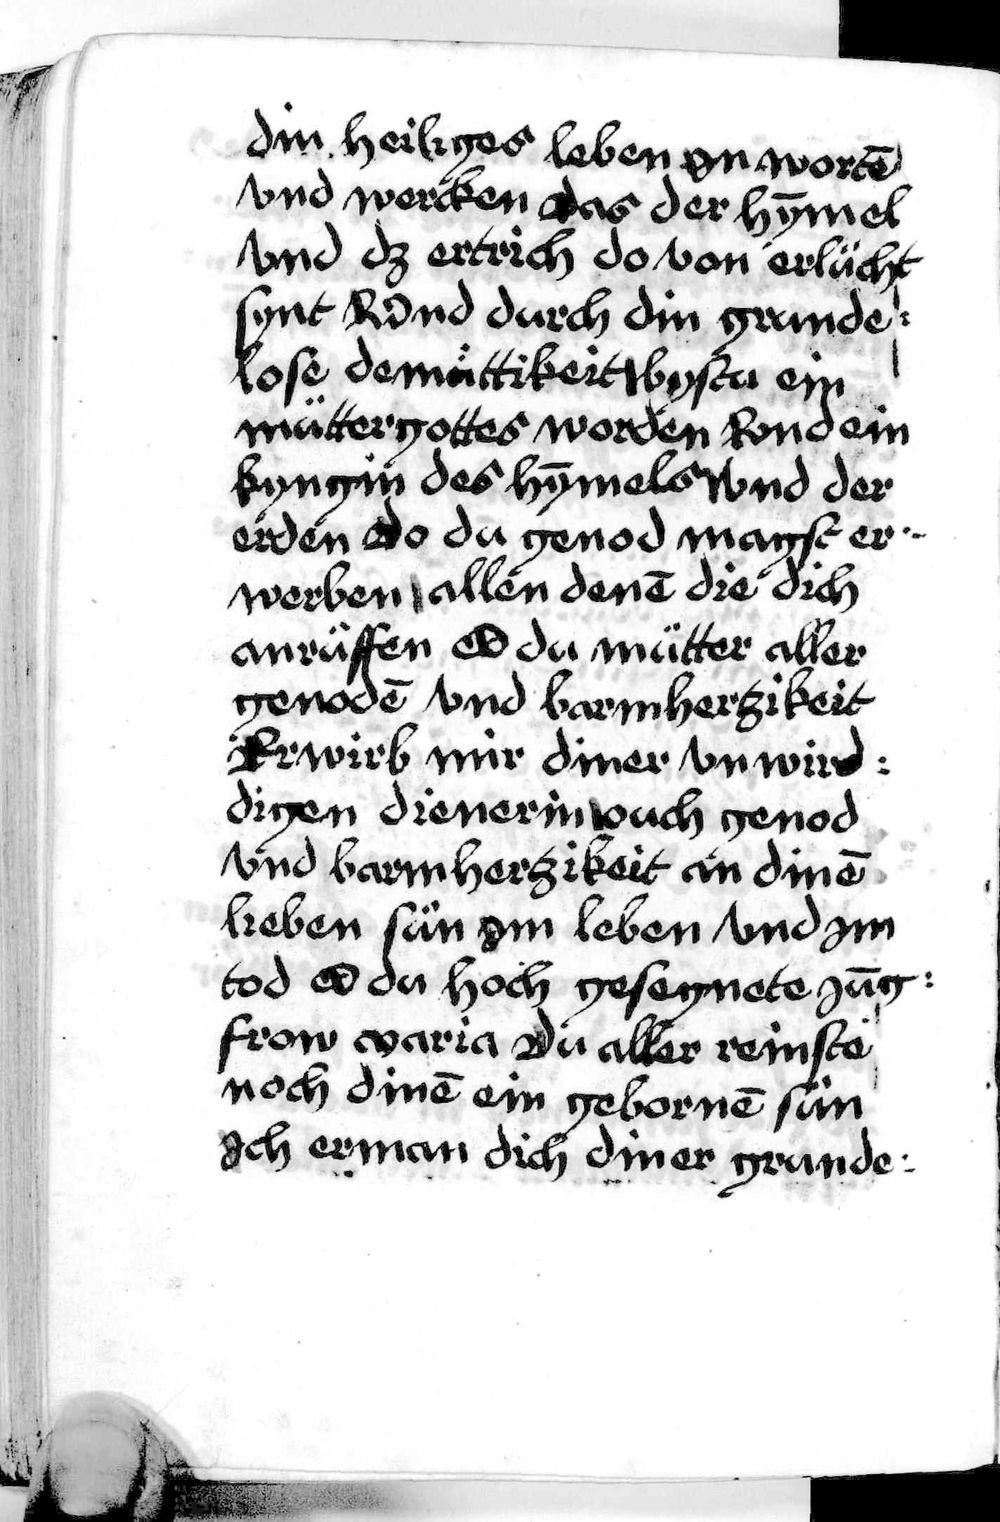 din heiliges leben yn wortē
vnd wercken das der hȳmel
vnd dz ertrich do von erlücht
synt Vnd durch din grunde:
lose demüttikeit bystu ein
mütter gottes worden vnd ein
kyngin des hȳmels vnd der
erden do du genod magst er:
werben allen denē die dich
anrüffen O du mütter aller
genodē vnd barmhertzikeit
Erwirb mir diner vnwird:
digen dienerin ouch genod
vnd barmhertzikeit an dinē
lieben sün ym leben vnd jm
tod O du hoch gesegnete jūg:
frow maria Du aller reinste
noch dinē ein gebornē sün
Ich erman dich diner grunde: